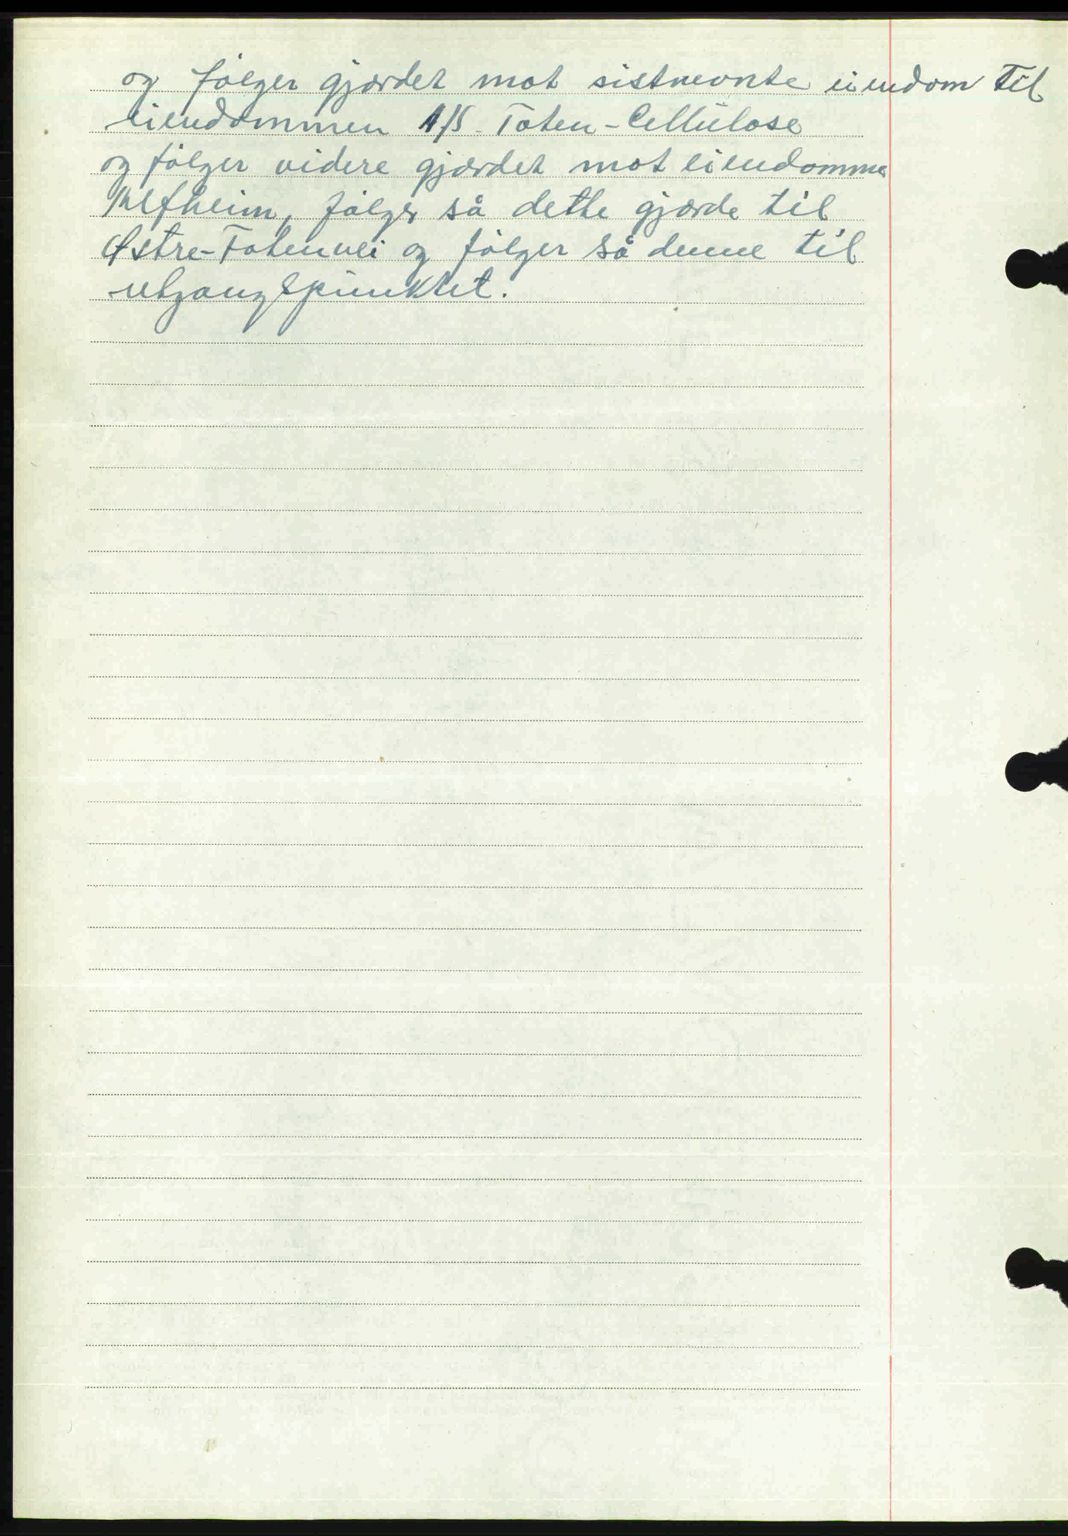 og følger gjærdet mot sistnevnte eiendom til
eiendommen A/S. Toten-Cellulose
og følger videre gjærdet mot eiendomme
heim, følger så dette gjærde til
Østre-Totenvei og følger så denne til
utgangspunktet.